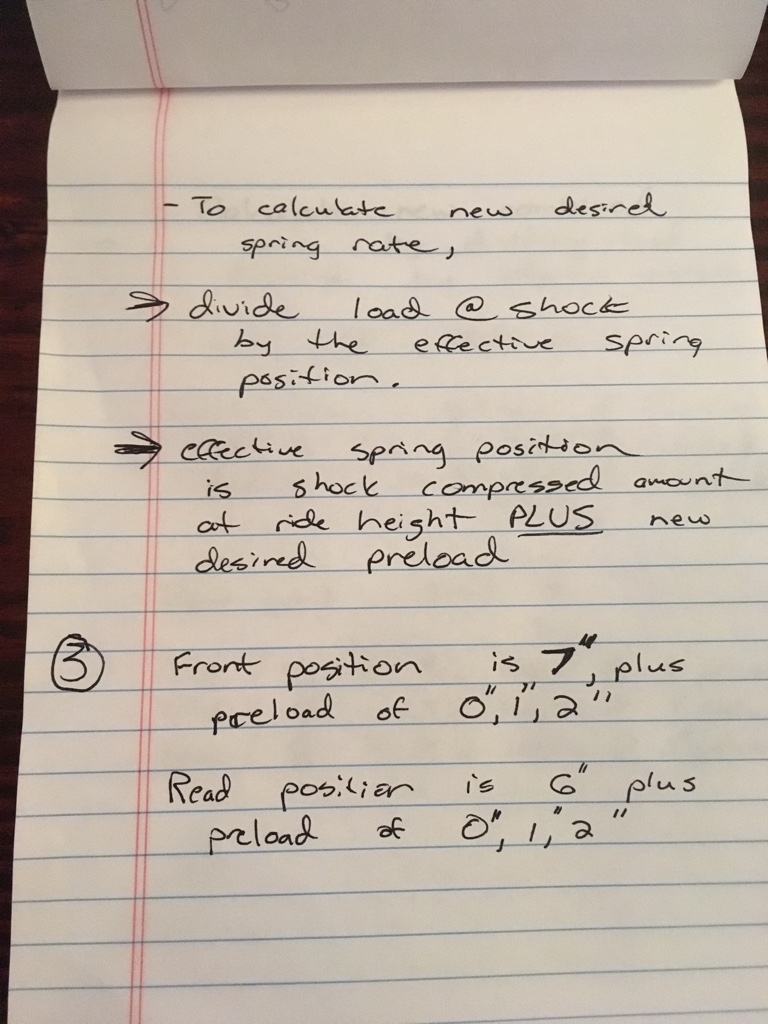 - To calculate new desired
spring rate,
→ divide load @ shock
by the effective spring
position.
→ effective spring position
is shock compressed amount
at ride height PLUS new
desired preload
③ Front position is 7", plus
preload of 0", 1", 2"
Read position is 6" plus
preload of 0", 1," 2"